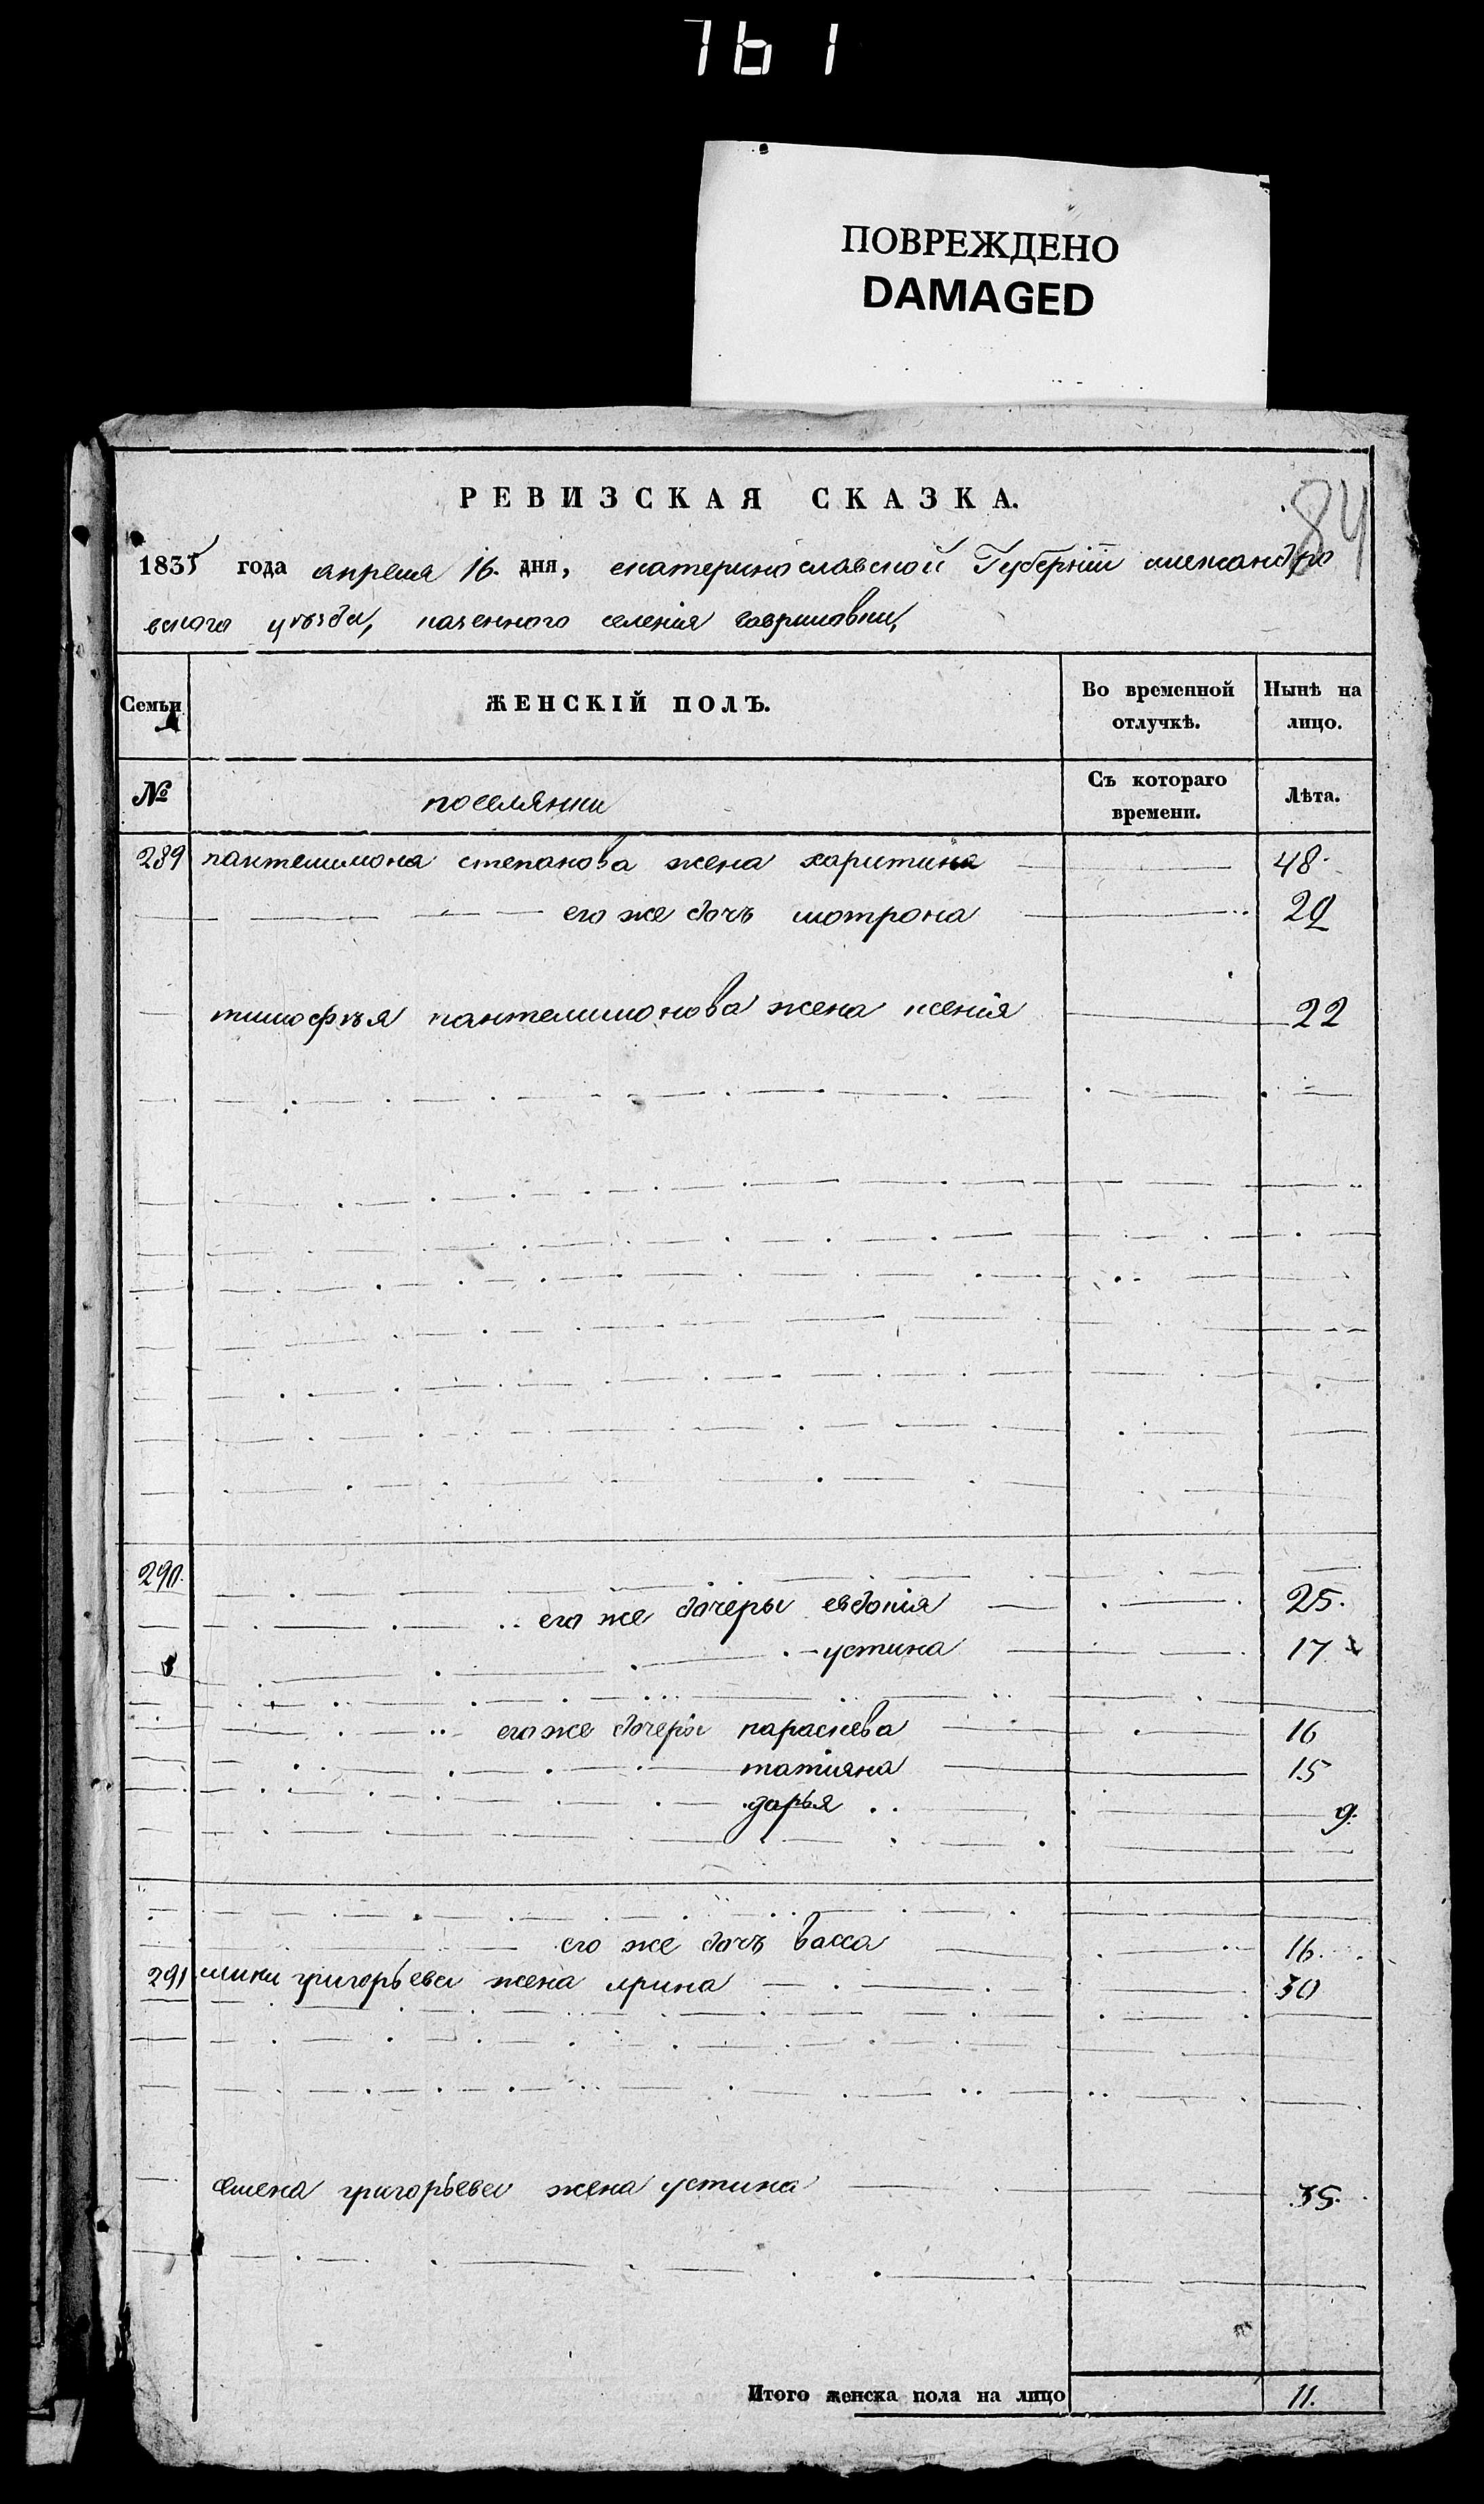 761
ПОВРЕЖДЕНО
DAMAGED
84
РЕВИЗСКАЯ СКАЗКА.
1835 года апреля 16. дня, екатеринославской Губерніи александро
вскаго уѣзда, казенного селенія гавриловки,
Семьи
ЖЕНСКІЙ ПОЛЪ.
Во временной отлучкѣ.
Нынѣ на лицо.
№
поселянки
Съ котораго времени.
Лѣта.
289 пантелимона степанова жена харитина 48.
его же дочь мотрона 20
тимофѣя пантелимонова жена ксенія 22
290.
его же дочеры евдокія 25.
устина 17
его же дочеры параскева 16
татияна 15
дарья 9.
его же дочь васса 16.
291 григорьева жена ирина 30
семена григорьева жена устина 35.
Итого женска пола на лицо 11.